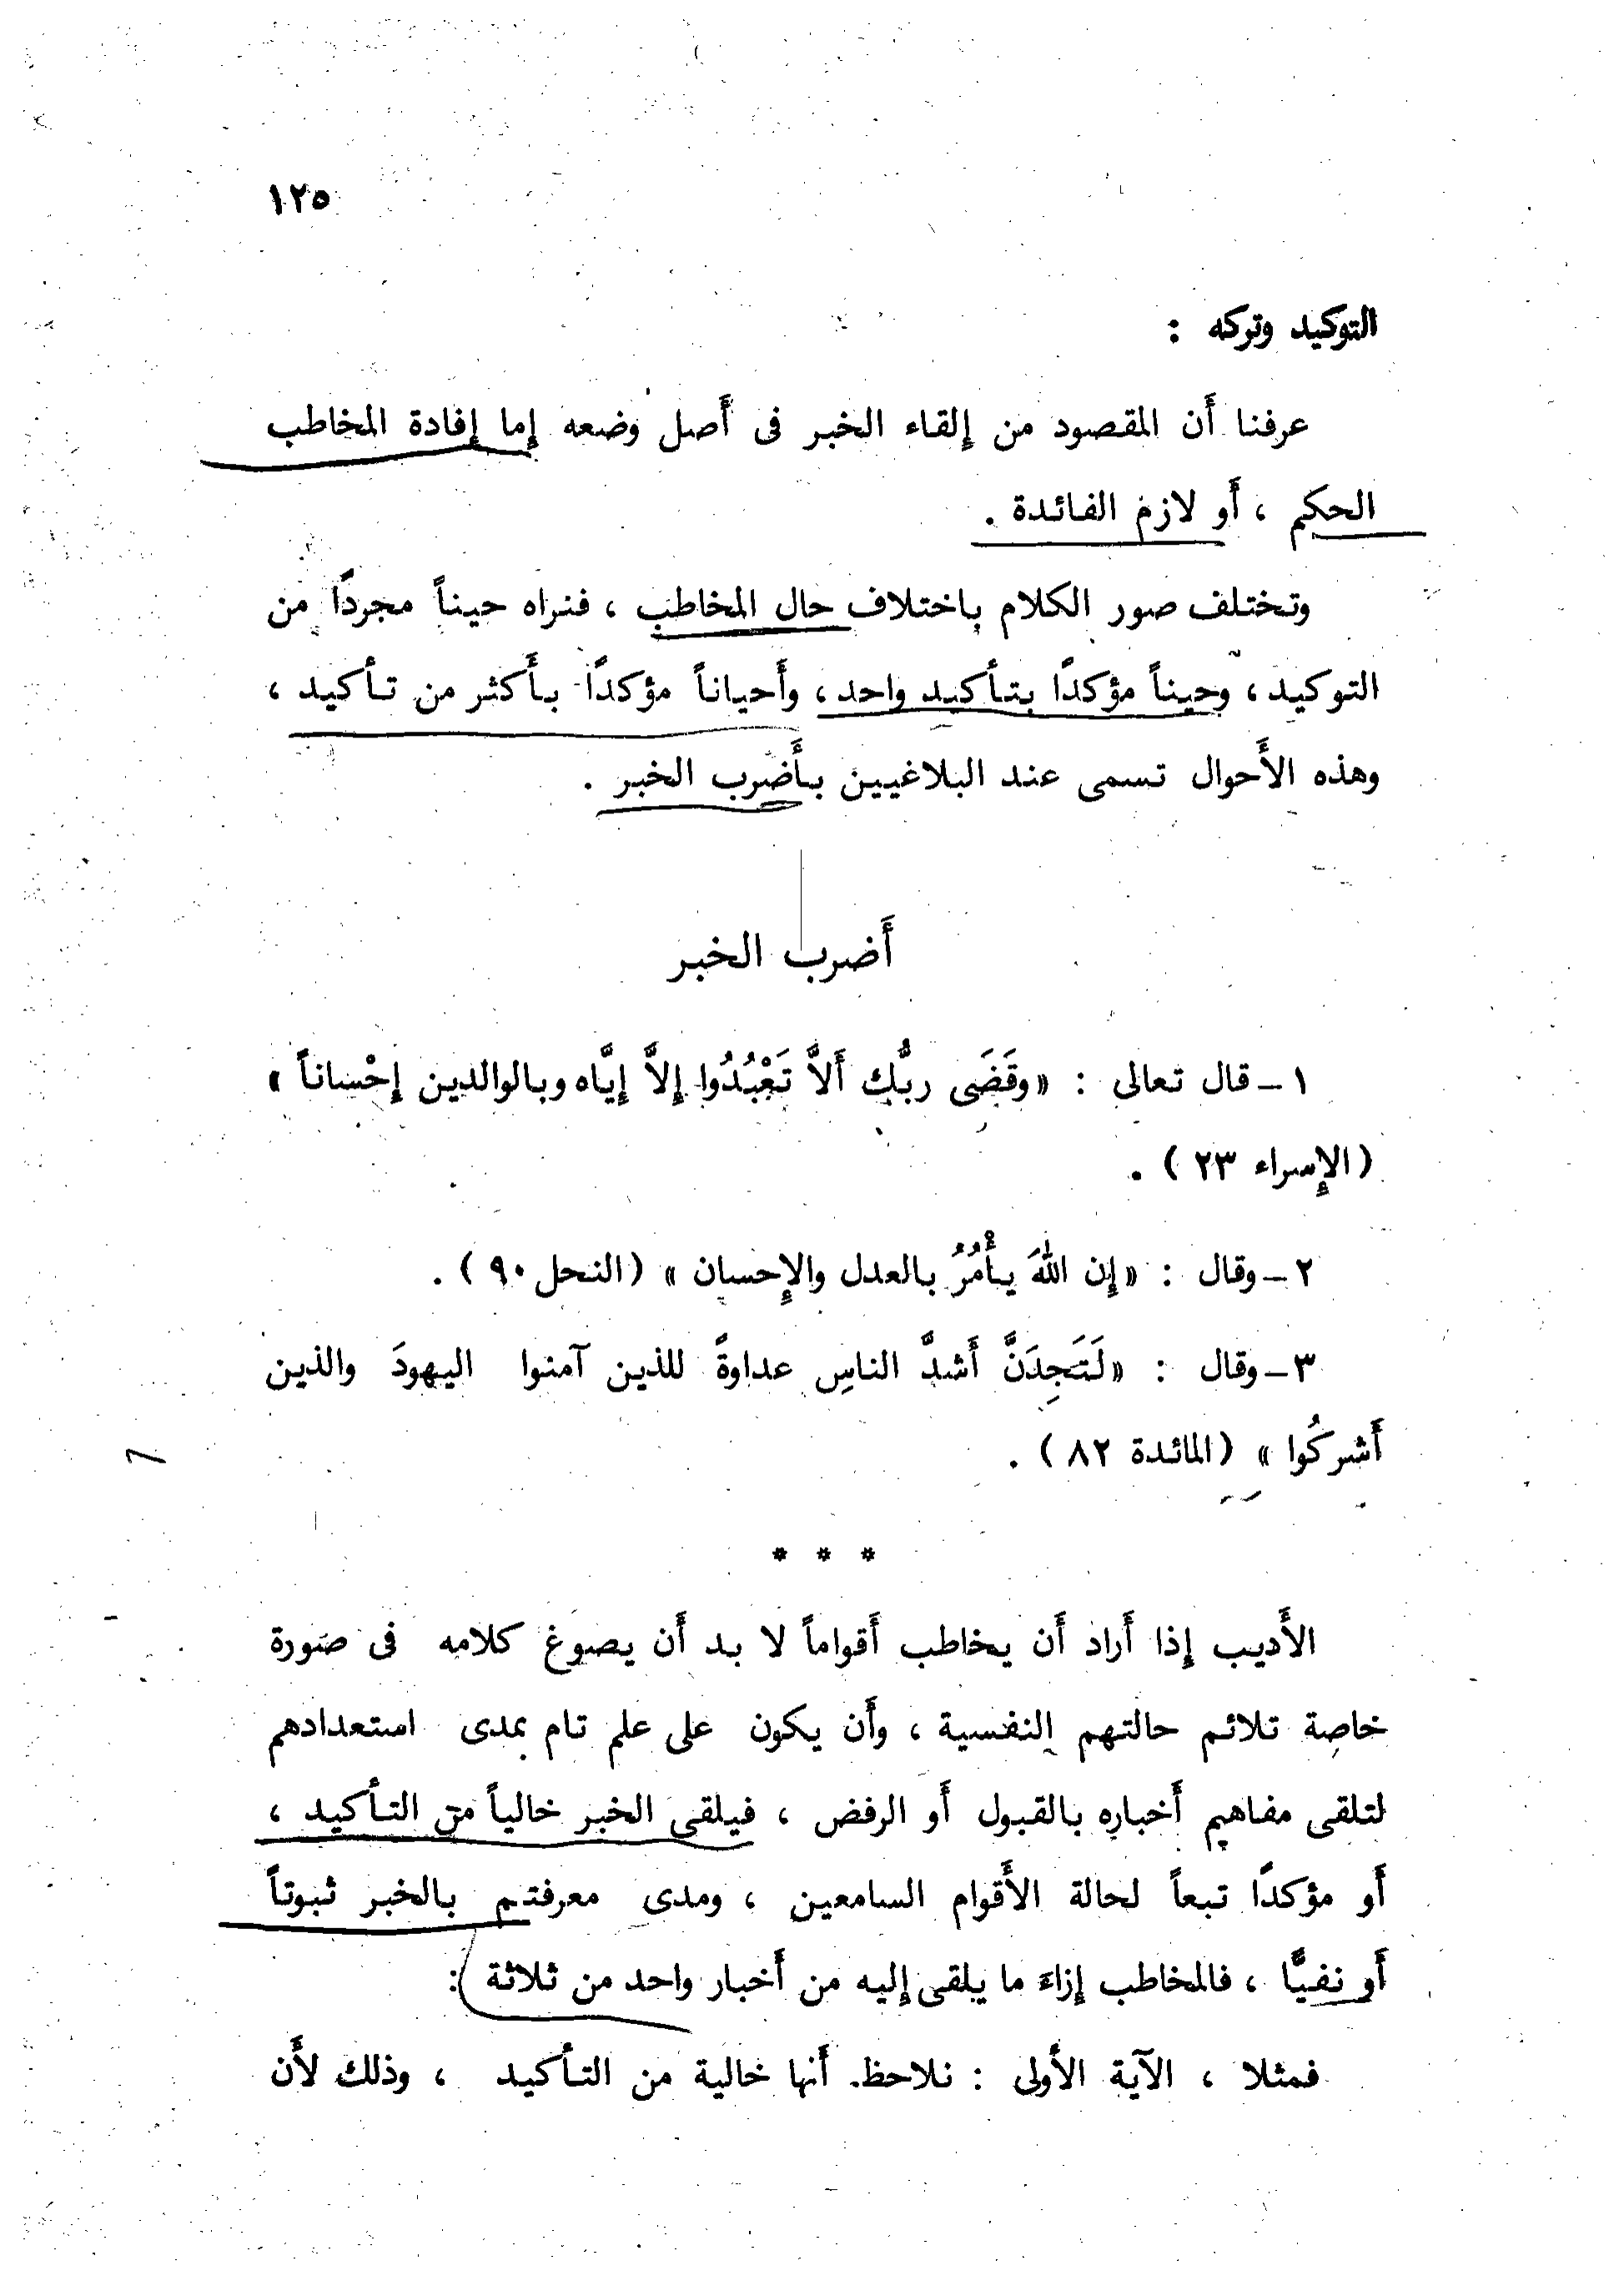 ١٢٥
التوكيد وتركه :
عرفنا أَن المقصود من إِلقاء الخبر فى أَصل وضعه إِما إِفادة المخاطب
الحكم ، أَو لازم الفائدة .
وتختلف صور الكلام باختلاف حال المخاطب ، فنراه حيناً مجردًا من
التوكيد ، وحيناً مؤكدًا بتأكيد واحد ، وأَحياناً مؤكدًا بأَكثر من تأكيد ،
وهذه الأَحوال تسمى عند البلاغيين بأَضرب الخبر .
أَضرب الخبر
١ – قال تعالى : «وقَضَى ربُّك أَلاَّ تَعْبُدُوا إِلاَّ إِيَّاه وبالوالدين إِحْساناً »
(الإِسراء ٢٣ ) .
٢ – وقال : «إِن اللّهَ يأْمُرُ بالعدل والإِحسان » (النحل ٩٠ ) .
٣ – وقال : «لَتَجِدَنَّ أَشدَّ الناسِ عداوةً للذين آمنوا اليهودَ والذين
أَشركُوا » (المائدة ٨٢ ) .
* * *
الأَديب إِذا أَراد أَن يخاطب أَقواماً لا بد أَن يصوغ كلامه فى صورة
خاصة تلائم حالتهم النفسية ، وأَن يكون على علم تام بمدى استعدادهم
لتلقى مفاهيم أَخباره بالقبول أَو الرفض ، فيلقى الخبر خالياً من التأكيد ،
أَو مؤكدًا تبعاً لحالة الأَقوام السامعين ، ومدى معرفتم بالخبر ثبوتاً
أَو نفيًّا ، فالمخاطب إِزاءَ ما يلقى إِليه من أَخبار واحد من ثلاثة :
فمثلا ، الآية الأُولى : نلاحظ. أَنها خالية من التأكيد ، وذلك لأَن